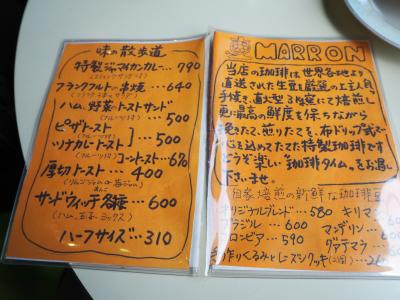 味の散歩道
特製ジャマイカンカレー…790
フランクフルトの串焼…640
ハム、野菜トーストサンド
(フルーツ付)…500
ピザトースト
(フルーツ付)…500
ツナカレートースト
コーントースト…690
厚切トースト…400
サンドウィッチ各種…600
(ハム、玉子、ミックス)
ハーフサイズ…310
MARRON
当店の珈琲は世界各地より
直送された生豆を厳選の上主人自
手焼き、直火型3枚窯にて焙煎し
更に最高の鮮度を保ちながら
挽きたて、煎りたてを、布ドリップ式で一
心を込めてたてた特製珈琲です
どうぞ楽しい珈琲タイムを、お過し
下さいませ。
自家焙煎の新鮮な珈琲豆
オリジナルブレンド…580 キリマ
ブラジル…600 マンデリン
コロンビア…590 グァテマラ
手作りくるみとレーズンクッキー